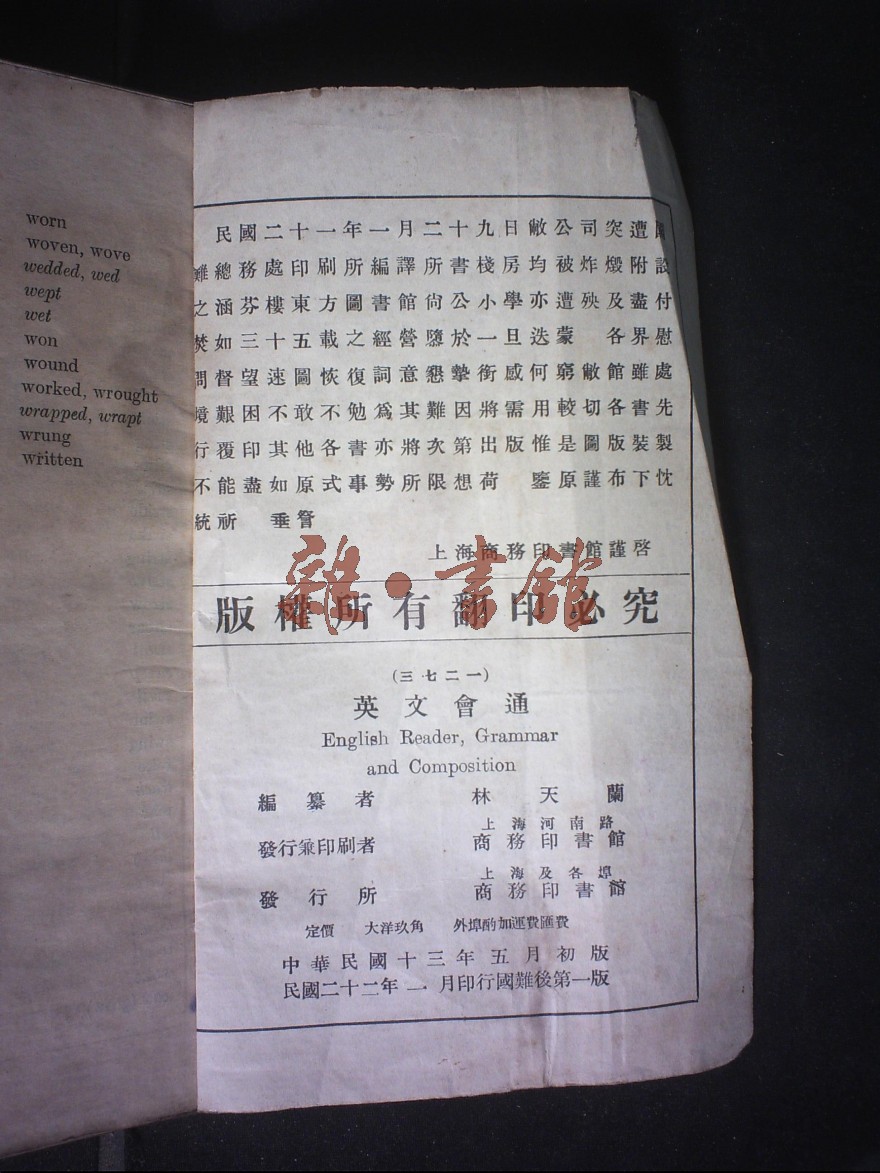 worn
woven, wove
wedded, wed
wept
wet
won
wound
worked, wrought
wrapped, wrapt
wrung
written
民國二十一年一月二十九日敝公司突遭國
難總務處印刷所編譯所書棧房均被炸燬附設
之涵芬樓東方圖書館尙公小學亦遭殃及盡付
焚如三十五載之經營隳於一旦迭蒙 各界慰
問督望速圖恢復詞意懇摯銜感何窮敝館雖處
境艱困不敢不勉爲其難因將需用較切各書先
行覆印其他各書亦將次第出版惟是圖版裝製
不能盡如原式事勢所限想荷 鑒原謹布下忱
統祈 垂詧
上海商務印書館謹啓
雜·書館
版權所有翻印必究
(三七二一)
英文會通
English Reader, Grammar
and Composition
編纂者 林天蘭
上海河南路
發行兼印刷者 商務印書館
上海及各埠
發行所 商務印書館
定價 大洋玖角 外埠酌加運費匯費
中華民國十三年五月初版
民國二十二年一月印行國難後第一版